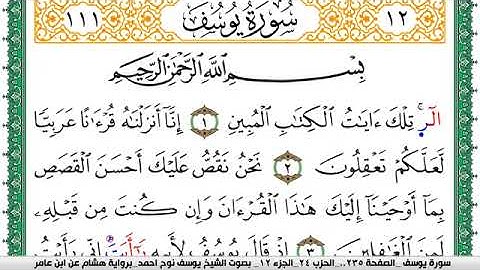 ١٢ سُورَةُ يُوسُفَ ١١١
بِسْمِ ٱللَّهِ ٱلرَّحْمَٰنِ ٱلرَّحِيمِ
الٓر تِلْكَ ءَايَٰتُ ٱلْكِتَٰبِ ٱلْمُبِينِ ١ إِنَّآ أَنزَلْنَٰهُ قُرْءَٰنًا عَرَبِيًّا
لَّعَلَّكُمْ تَعْقِلُونَ ٢ نَحْنُ نَقُصُّ عَلَيْكَ أَحْسَنَ ٱلْقَصَصِ
بِمَآ أَوْحَيْنَآ إِلَيْكَ هَٰذَا ٱلْقُرْءَانَ وَإِن كُنتَ مِن قَبْلِهِۦ
لَمِنَ ٱلْغَٰفِلِينَ ٣ إِذْ قَالَ يُوسُفُ لِأَبِيهِ يَٰٓأَبَتَ إِنِّي رَأَيْتُ
سورة يوسف _ الصفحة ٢٣٥.. الحزب ٢٤_الجزء ١٢ _ بصوت الشيخ يوسف نوح احمد_ برواية هشام عن ابن عامر